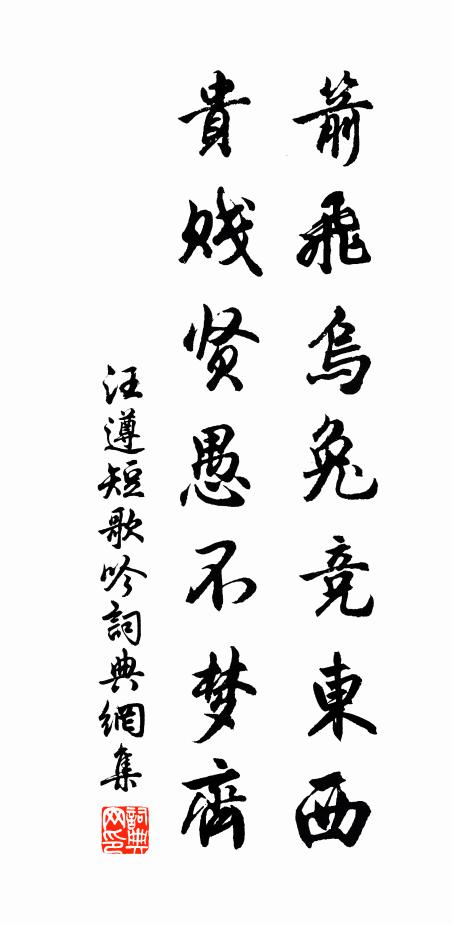 箭飛烏兔竞東西
貴贱贤愚不梦齊
汪遵短歌吟詞典網集
詞典网印